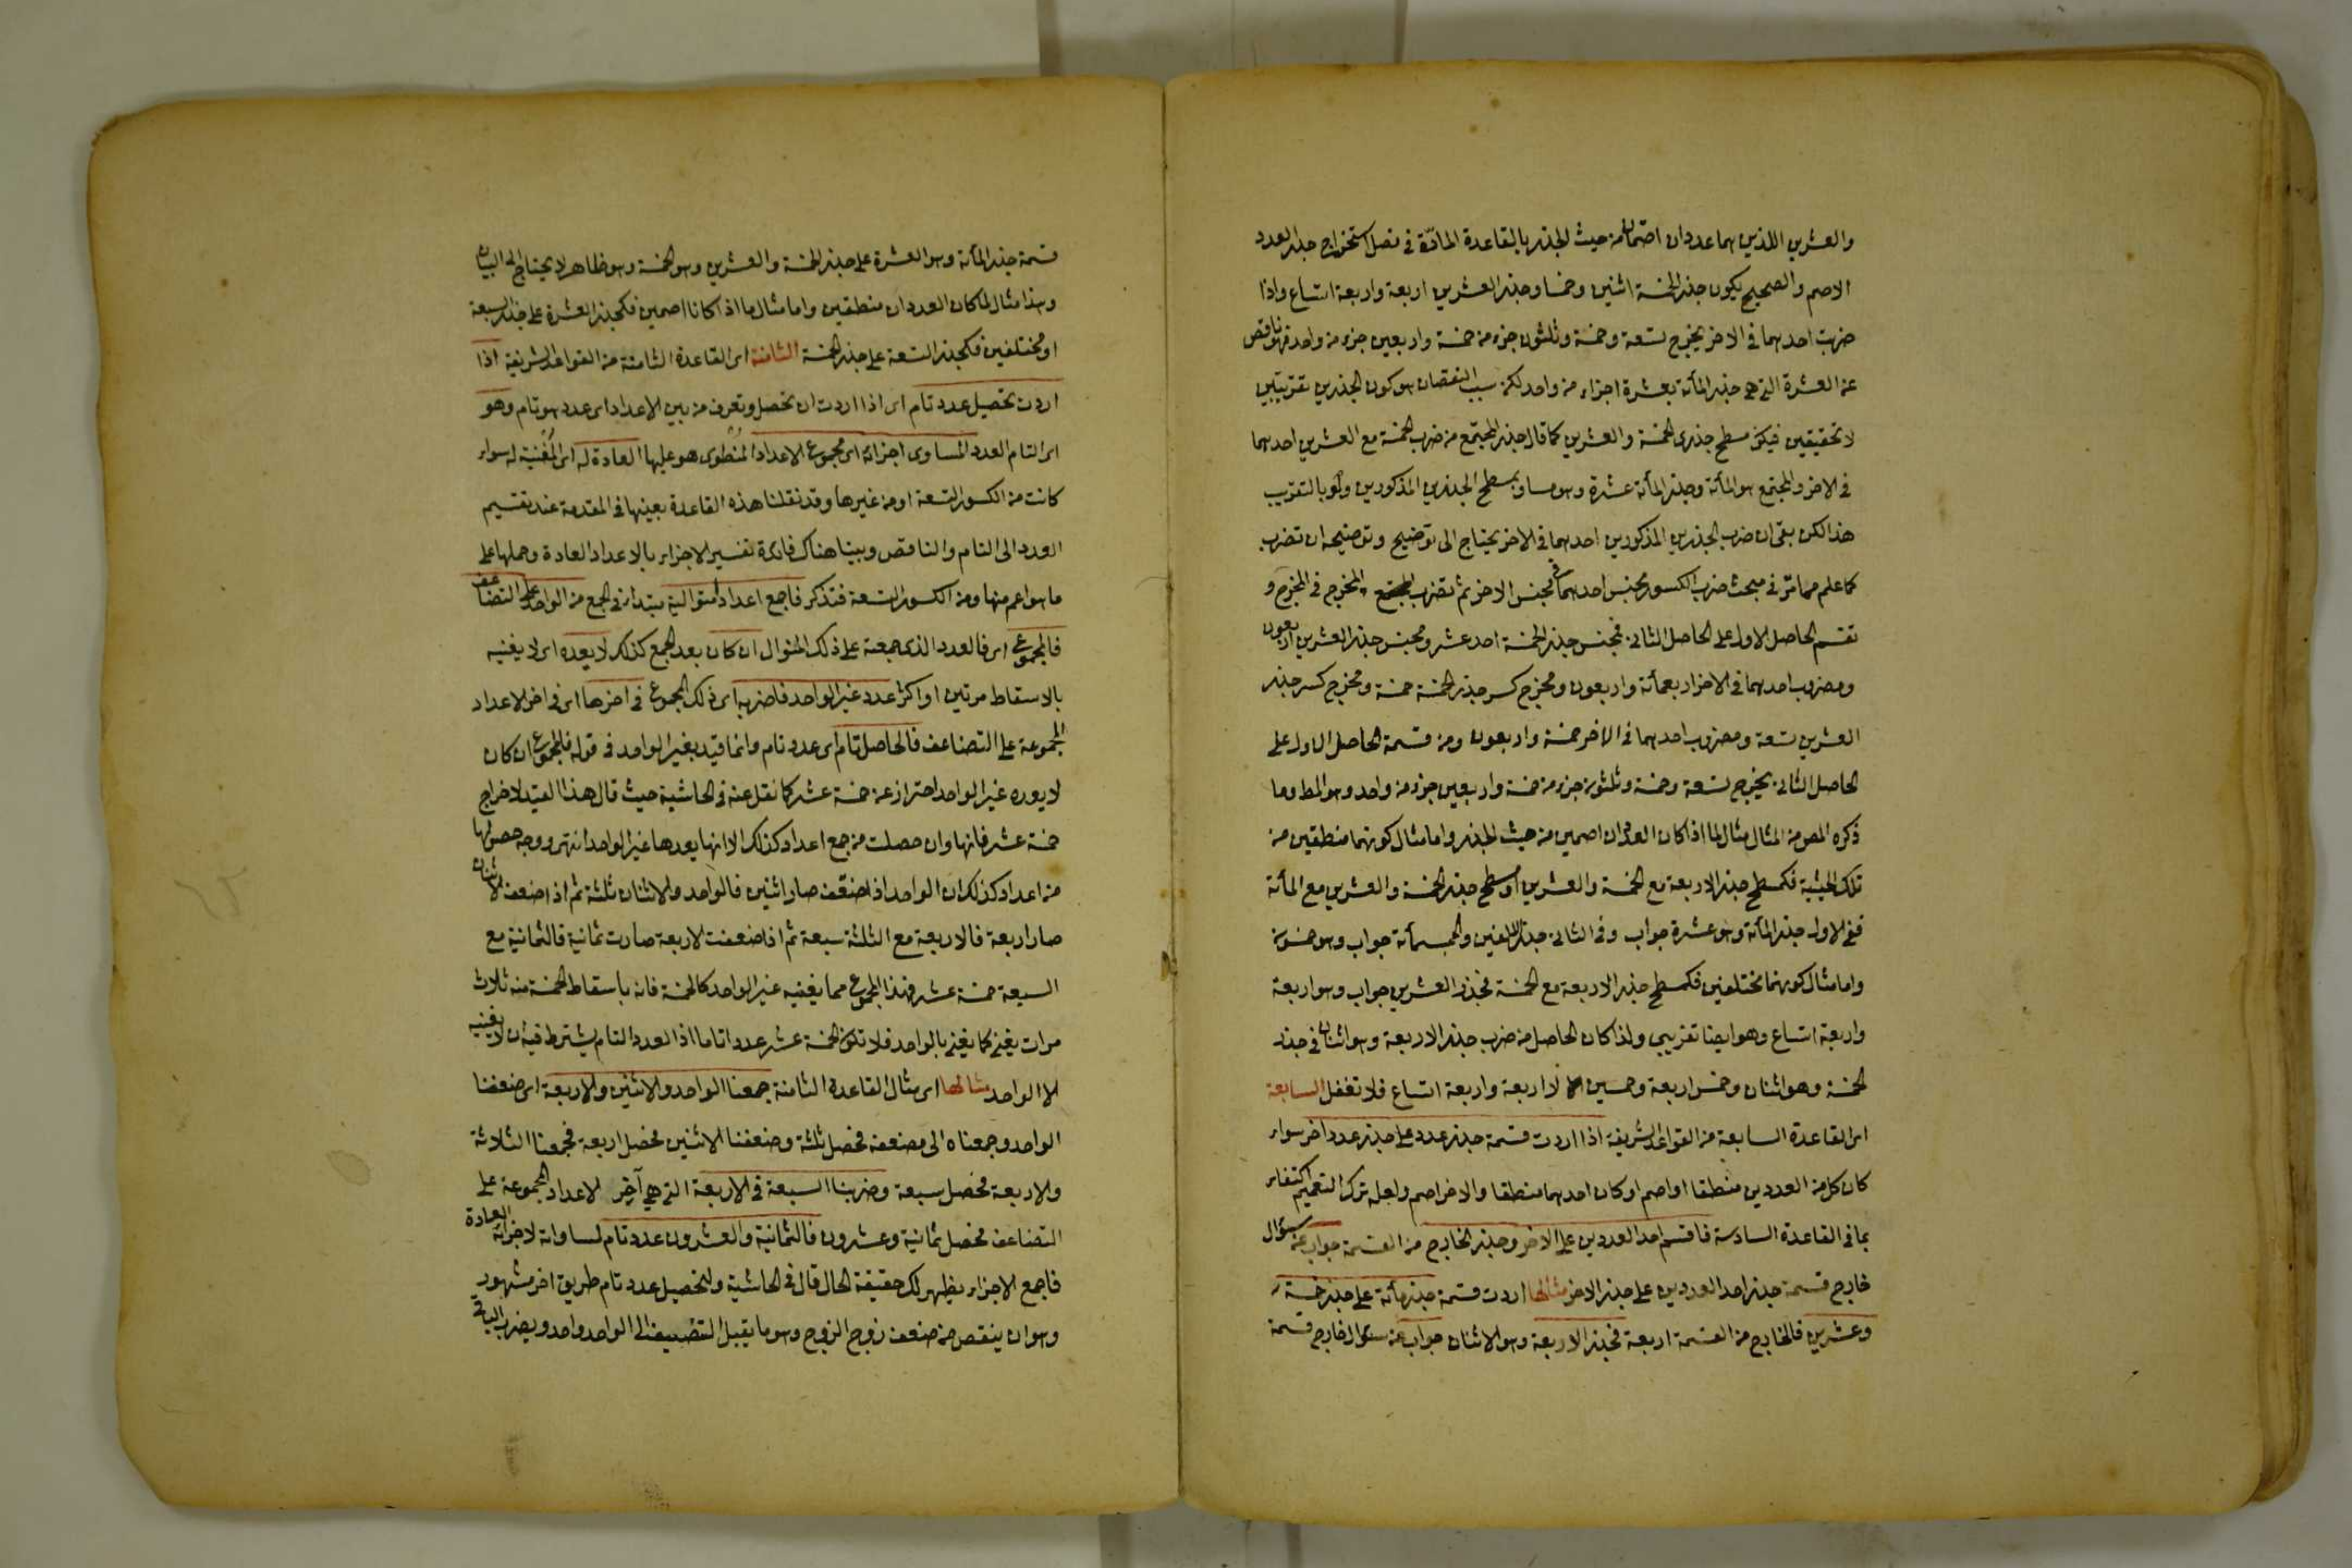 والعشرين اللذين هما عددان اصمان من حيث الجذر بالقاعدة المارّة في فصل استخراج جذر العدد
الاصم والصحيح يكون جذر الخمسة اثنين وخمسا وجذر العشرين اربعة واربعة اتساع واذا
ضربت احدهما في الاخر يخرج تسعة وخمسة وثلثون جزء من خمسة واربعين جزء من واحد فهو ناقص
عن العشرة التي هي جذر المأئة بعشرة اجزاء من واحد لكن سبب النقصان هو كون الجذرين تقريبيين
لا تحقيقيين فيكون مسطح جذري الخمسة والعشرين كما قال جذر المجتمع من ضرب الخمسة مع العشرين احدهما
في الاخر والمجتمع هو المأئة وجذر المأئة عشرة وهو مساو لمسطح الجذرين المذكورين ولو بالتقريب
هذا لكن بقي ان ضرب الجذرين المذكورين احدهما في الاخر يحتاج الى توضيح وتوضيحه ان تضرب
كما علم مما مرّ في مبحث ضرب الكسور مجنس احدهما في مجنس الاخر ثم تضرب المخرج في المخرج و
تقسم الحاصل الاول على الحاصل الثاني فمجنس جذر الخمسة احد عشر ومجنس جذر العشرين اربعون
ومضروب احدهما في الاخر اربعمأئة واربعون ومخرج كسر جذر الخمسة خمسة ومخرج كسر جذر
العشرين تسعة ومضروب احدهما في الاخر خمسة واربعون ومن قسمة الحاصل الاول على
الحاصل الثاني يخرج تسعة وخمسة وثلثون جزء من خمسة واربعين جزء من واحد وهو المط وما
ذكره المص من المثال مثال لما اذا كان العددان اصمين من حيث الجذر واما مثال كونهما منطقين من
تلك الحيثية فكمسطح جذر الاربعة مع الخمسة والعشرين او مسطح جذر الخمسة والعشرين مع المأئة
ففي الاول جذر المأئة وهو عشرة جواب وفي الثاني جذر الالفين والخمسمأئة جواب وهو خمسون
واما مثال كونهما مختلفين فكمسطح جذر الاربعة مع الخمسة فجذر العشرين جواب وهو اربعة
واربعة اتساع وهو ايضا تقريبي ولذا كان الحاصل من ضرب جذر الاربعة وهو اثنان في جذر
الخمسة وهو اثنان وخمس اربعة وخمسين لا اربعة واربعة اتساع فلا تغفل السابعة
اي القاعدة السابعة من القواعد الشريفة اذا اردت قسمة جذر عدد على جذر عدد آخر سواء
كان كل من العددين منطقا او اصم او كان احدهما منطقا والاخر اصم ولعله ترك التعميم اكتفاء
بما في القاعدة السادسة فاقسم احد العددين على الاخر وجذر الخارج من القسمة جواب عن سؤال
خارج قسمة جذر احد العددين على جذر الاخر مثالها اردت قسمة جذر مأئة على جذر خمسة
وعشرين فالخارج من القسمة اربعة فجذر الاربعة وهو الاثنان جواب عن سؤال خارج قسمة
قسمة جذر المأئة وهو العشرة على جذر الخمسة والعشرين وهو الخمسة وهو ظاهر لا يحتاج الى البيان
وهذا مثال لما كان العددان منطقين واما مثال ما اذا كانا اصمين فكجذر العشرة على جذر السبعة
او مختلفين فكجذر التسعة على جذر الخمسة الثامنة اي القاعدة الثامنة من القواعد الشريفة اذا
اردت تحصيل عدد تام اي اذا اردت ان تحصل وتعرف من بين الاعداد اي عدد هو تام وهو
اي التام العدد المساوي اجزائه اي مجموع الاعداد المنطوي هو عليها العادة له اي المفنية له سواء
كانت من الكسور التسعة او من غيرها وقد نقلنا هذه القاعدة بعينها في المقدمة عند تقسيم
العدد الى التام والناقص وبينا هناك فائدة تفسير الاجزاء بالاعداد العادة وحملها على
ما هو اعم منها ومن الكسور التسعة فتذكر فاجمع اعدادا متوالية مبتدأ في الجمع من الواحد على التضاعف
فالمجموع اي فالعدد الذي جمعته على ذلك المنوال ان كان بعد الجمع كذلك لا يعده اي لا يفنيه
بالاسقاط مرتين او اكثر عدد غير الواحد فاضربه اي ذلك المجموع في اخرها اي في اخر الاعداد
المجموعة على التضاعف فالحاصل تام اي عدد تام وانما قيد بغير الواحد في قوله فالمجموع ان كان
لا يعده غير الواحد احتراز عن خمسة عشر كما نقل عنه في الحاشية حيث قال هذا القيد لاخراج
خمسة عشر فانها وان حصلت من جمع اعداد كذلك الا انها يعدها غير الواحد انتهى ووجه حصولها
من اعداد كذلك ان الواحد اذا ضعف صار اثنين فالواحد والاثنان ثلثة ثم اذا ضعف الاثنان
صار اربعة فالاربعة مع الثلثة سبعة ثم اذا ضعفت الاربعة صارت ثمانية فالثمانية مع
السبعة خمسة عشر فهذا المجموع مما يفنيه غير الواحد كالخمسة فانه باسقاط الخمسة منه ثلاث
مرات يفنى كما يفنى بالواحد فلا تكون الخمسة عشر عددا تاما اذ العدد التام يشترط فيه ان لا يفنيه
الا الواحد مثالها اي مثال القاعدة الثامنة جمعنا الواحد والاثنين والاربعة اي ضعفنا
الواحد وجمعناه الى مضعفه فحصل ثلثة وضعفنا الاثنين فحصل اربعة فجمعنا الثلاثة
والاربعة فحصل سبعة وضربنا السبعة في الاربعة التي هي آخر الاعداد المجموعة على
التضاعف فحصل ثمانية وعشرون فالثمانية والعشرون عدد تام لمساواته لاجزائه العادة
فاجمع الاجزاء يظهر لك حقيقة الحال قال في الحاشية ولتحصيل عدد تام طريق اخر مشهور
وهو ان ينقص من ضعف زوج الزوج وهو ما يقبل التضعيف الى الواحد واحد ويضرب الباقي